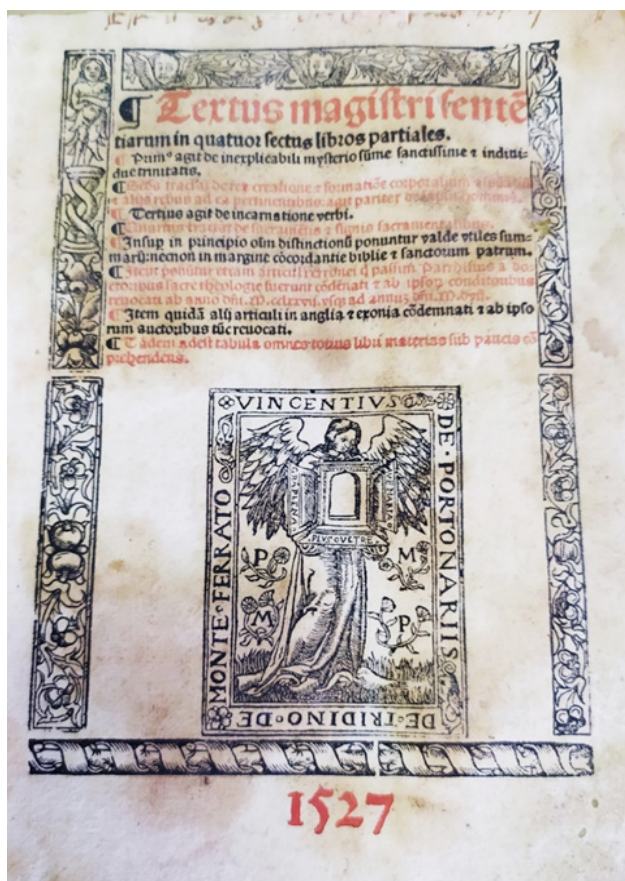 ¶ Textus magistri sentē
tiarum in quatuor sectus libros partiales.
¶ Primꝰ agit de inexplicabili mysterio sūme sanctissime ⁊ indiui-
due trinitatis.
¶ rerū creatione ⁊ formatiōe corporalium
⁊ alijs rebus ad ea pertinentibus: agit pariter
¶ Tertius agit de incarnatione verbi.
¶ Quartus de sacramentis ⁊ signis sacramentalibus.
¶ Insup in principio oīm distinctionū ponuntur valde vtiles sum-
marū: necnon in margine cōcordantie biblie ⁊ sanctorum patrum.
¶ Item ponūtur etiam articuli erronei Parrhisius a do-
ctoribus sacre theologie fuerunt cōdēnati ⁊ ab ipsoꝝ conditoribus
reuocati ab anno dñi. M. cclxxvii. vsqꝫ ad annum dñi. M.
¶ Item quidā alij articuli in anglia ⁊ exonia cōdemnati ⁊ ab ipso
rum auctoribus tūc reuocati.
¶ Tādem adest tabula omnes totius libri materias sub paucis cō
prehendens.
VINCENTIVS
DE·PORTONARIIS
DE·TRIDINO·DE
MONTE·FERRATO
P M
M P
1527